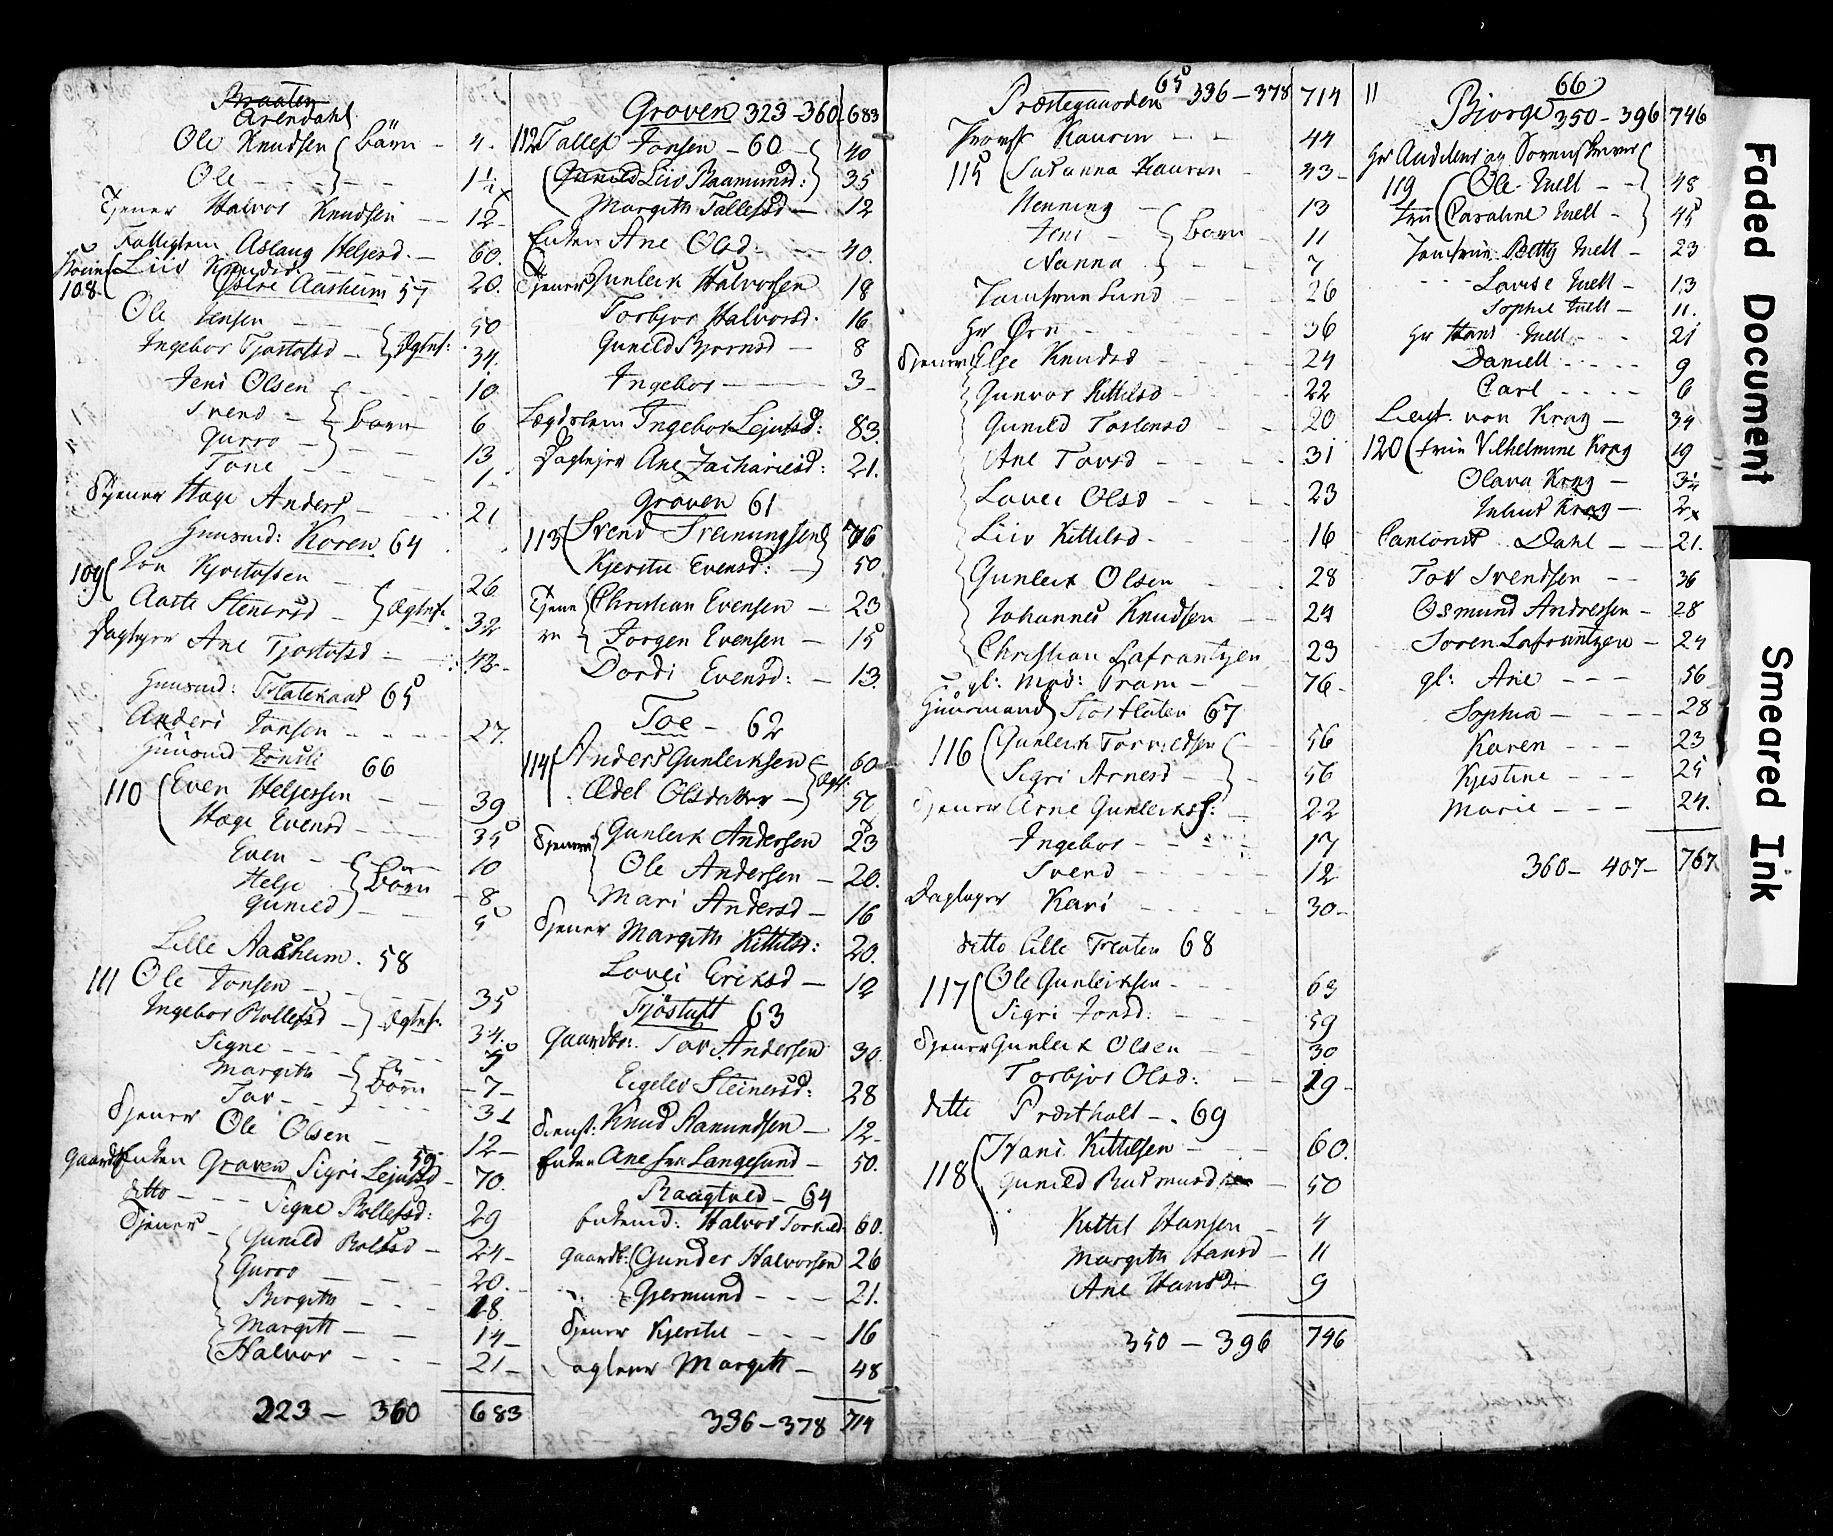 Braaten
Arendahl
Ole Knudsen } børn - 4.
Ole - - - 1 1/2
Tjener Halvor Knudsen - 12 -
Fattiglem Aslaug Heljesd. - 60.
Liv Knudsd. 20.
108 Østre Aasheim 57
Ole Jensen - - 50
Ingebor Tjostofsd - } Ægtef: 34.
Jens Olsen - - 10
Svend - } børn 6
Gurro - - 13
Tone - - 1.
Tjener Hæge Anders - - 21
Huusmd: Kosen 64
109 Jon Kjostofsen - 26
Aaste Stenersd - } Ægtef. 32
Dagleyer Ane Tjostofsd - - 43 -
Huusmd: Flatekaas 65
Anders Jonsen - - - 27.
Huusmd Jonsli 66
110 Even Heljessen - - 39
Hæge Evensd - - - 35
Even - - } Börn 10
Helje - 8
Gunild - - 5
Lille Aasheim. 58
111 Ole Jonsen - - - 35
Ingebor Rollefsd - } Ægtef. 34.
Signe - - - - 9
Margith - } Börn - 7 -
Tor - - - - 3 1
Tjener Ole Olsen - 12 -
Gaardbr Enken Graven Sigri Lejulsd 59 - 70.
ditto - - - Signe Rollefsd: 29
Tjener - Gunild Rollefsd - 24 -
Gurro - - - 20.
Birgith - - - 18
Margith - - 14 -
Halvor - - - 21 -
323 - 360 683
Graven 323 - 360 - 683
112 Tallef Jonsen - 60 - 40
Gunild Liv Raamunsd: 35
Margith Tallefsd - 12
Enken Ane Olsd. - - 40.
Tjener Gunleik Halvorsen 18
Torbjor Halvorsd. 16
Gunild Bjornsd - 8
Ingebor - - - 3 -
Lægdslem Ingebor Lejulsd: 83.
Dagleyer Ane Zachariesd: 21.
Graven 61
113 Svend Sveinungsen 76
Kjerstie Evensd: - 50
Tjene Christian Evensen - 23
re Jorgen Evensen - 15
Dordi Evensd: - 13.
Toe - 62
114 Anders Gunleiksen 60
Ædel Olsdatter - } Ægtf. 50
Tjenere Gunleik Andersen 23
Ole Andersen - 20.
Mari Andersd - 16
Tjener Margith Kittilsd: 20.
Lovei Eriksd - 12
Tjostuft 63
Gaardbr: Tov Andersen 30.
Eigelev Steinersd: 28
Tienst: Knud Aamundsen - 12 -
Enken Ane fra Langesund - 50.
Raagtved - 64
Enkemd: Halvor Torkild. 60.
Gaardb: Gunder Halvorsen 26
Gjermund - - - 21.
Tjener Kjerstie - - - 16
Dagleyer Margith - 48
336 - 378 714
Præstegaarden 65 336 - 378 714
Provst Kaurin - - 44
115 Susanna Kaurin - 43 -
Henning - - 13
Jens - } Børn - 11
Nanna - 7
Jomfrue Lund - - - 26
Hr Ørn - - - - 36
Tjenere Else Knudsd - - - 24
Gunvor Kittilsd - - - 22
Gunild Tostensd - - 20
Ane Tovsd - - - - 31
Lovei Olsd - - - - 23
Liv Kittilsd - - - 16
Gunleik Olsen - - 28
Johannes Knudsen - - 24
Christian Lafrantzen 23
gl: Mad: Pram - - 76 -
Huusmand Storfloten 67
116 Gunleik Torkildsen - 56
Sigri Arnesd - - 56
Tjener Arne Gunleiksf: - 22
Ingebor - - - - 17
Svend - - - - 12
Dagleyer Kari - - - - 30 -
ditto Lille Fraaten 68
117 Ole Gunleiksen - - - 63
Sigri Jonsd: - - - 59
Tjener Gunleik Olsen - - 30
Torbjor Olsd: - - 19 -
ditto Præstholt - . 69
Hans Kittilsen - - - 60.
118 Gunild Rasmusd - 50
Kittil Hansen - 4
Margith Hansd - 11
Ane Hansd: 9
350 - 396 746
66
11 Bjorge 350 - 396 746
Hr Auditeur og Sorenskriver
119 Ole Mell - - 48
Frue Caroline Mell - 45
Jomfrue Betty Mell - 23
- - - Lovise Mell - 13
Sophie Mell - 11.
Hr Hans Mell - - - 21
Daniell - - - - 9
Carl - - - - 6
Lieut. von Krag - 34
120 Frue Vilhelmine Krag 19
Olava Krag - 3 1/4
Julius Krag - 2
Cantorist Dahl - - 21.
Tov Svendsen - - 36
Osmund Andressen - 28
Soren Lafrantzen - 24
gl: Ane - - - 56
Sophia - - - 28
Karen - - - 23
Kjestine - - - 25
Marie - - - 24.
360 - 407 - 767
Faded Document
Smeared Ink